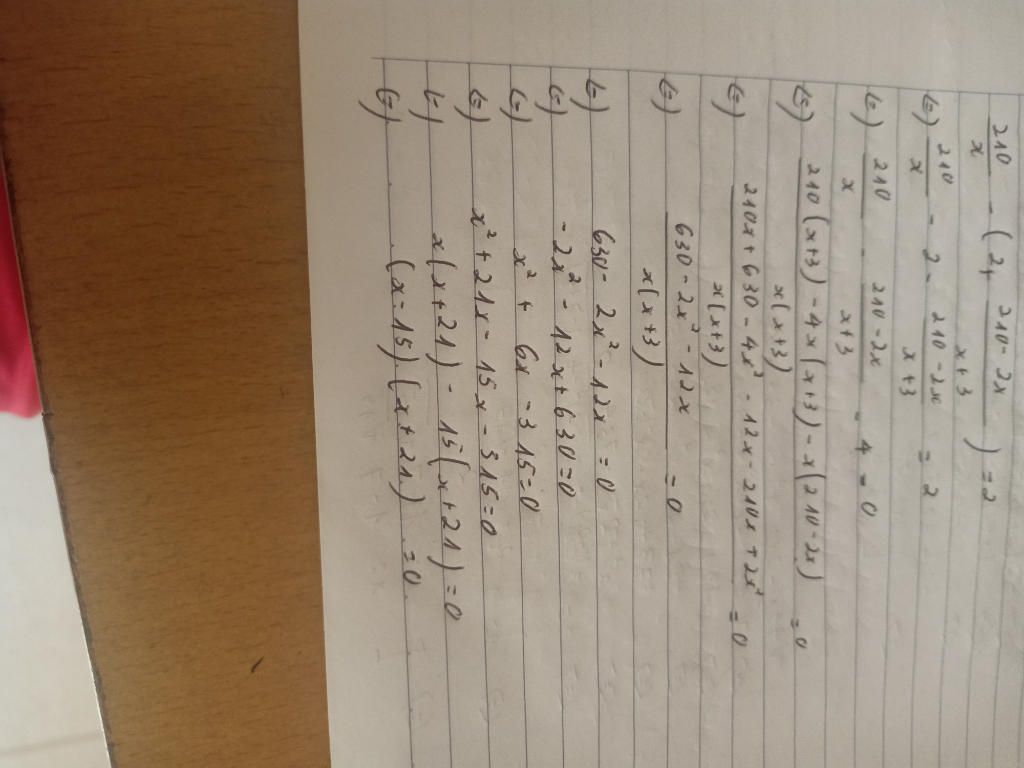 210/x - (2 + 210-2x/x+3) = 2
(=) 210/x - 2 - 210-2x/x+3 = 2
(=) 210/x - 210-2x/x+3 - 4 = 0
(=) 210(x+3) - 4x(x+3) - x(210-2x)/x(x+3) = 0
(=) 210x + 630 - 4x² - 12x - 210x + 2x²/x(x+3) = 0
(=) 630 - 2x² - 12x/x(x+3) = 0
(=) 630 - 2x² - 12x = 0
(=) - 2x² - 12x + 630 = 0
(=) x² + 6x - 315 = 0
(=) x² + 21x - 15x - 315 = 0
(=) x(x+21) - 15(x+21) = 0
(=) (x-15)(x+21) = 0